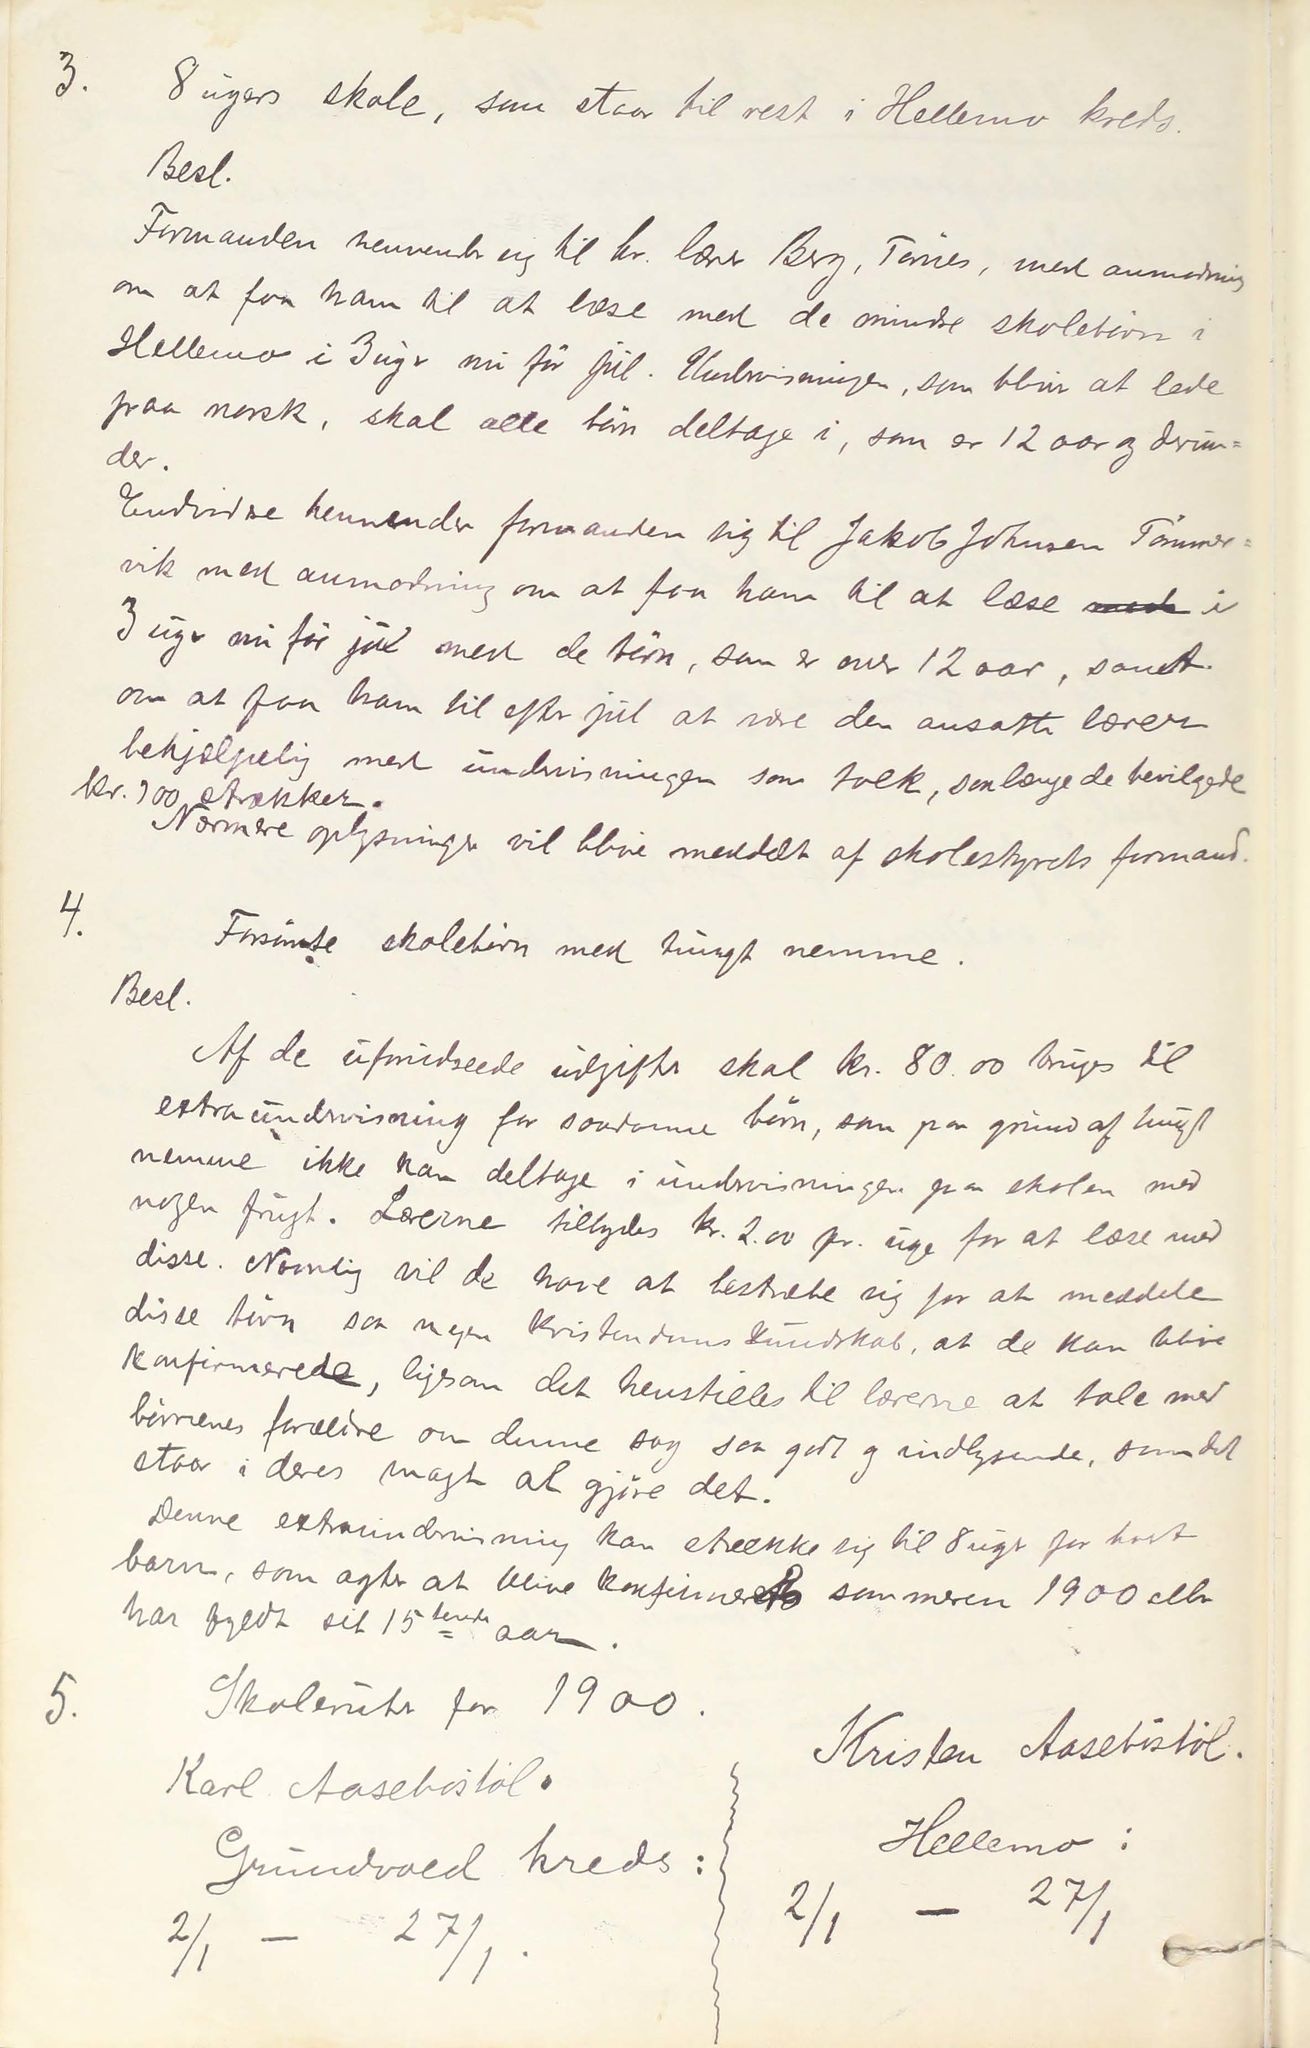 3. 8 ugers skole, som staar til rest i Hellemo kreds.
Besl.
Formanden henvender sig til hr. lærer Berg, Tömes, med anmodning
om at faa ham til at læse med de mindre skolebörn i
Hellemo i 3 uger nu för jul. Undervisningen, som bliver at lede
paa norsk, skal alle börn deltage i, som er 12 aar og derun=
der.
Endvidere henvender formanden sig til Jakob Johnsen Tömmer=
vik med anmodning om at faa ham til at læse med i
3 uger nu för jul med de börn, som er over 12 aar, samt
om at faa ham til efter jul at være den ansatte lærer
behjælpelig med undervisningen som tolk, saalænge de bevilgede
kr. 100 strækker.
Nærmere oplysninger vil blive meddelt af skolestyrets formand.
4. Forsömte skolebörn med tungt nemme.
Besl.
Af de uforudseede udgifter skal kr. 80.00 bruges til
extraundervisning for saadanne börn, som paa grund af tungt
nemme ikke kan deltage i undervisningen paa skolen med
nogen frugt. Lærerne tilbydes kr. 2.00 pr. uge for at læse med
disse. Navnlig vil de have at bestræbe sig for at meddele
disse börn saa megen kristendomskundskab, at de kan blive
konfirmerede, ligesom det henstilles til lærerne at tale med
börnenes forældre om denne sag saa godt og indlysende, som det
staar i deres magt at gjöre det.
Denne extraundervisning kan strække sig til 8 uger for hvert
barn, som agter at blive konfirmeret sommeren 1900 eller
har fyldt sit 15tende aar.
5. Skoleruter for 1900.
Karl Aaseböstöl.
Grundvaed kreds:
2/1 — 27/1.
Kristen Aaseböstöl.
Hellemo:
2/1 — 27/1